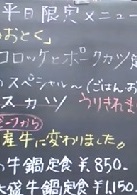 平日限定メニュー
おとく
コロッケとポークカツ定
スペシャル～(ごはん お
スカツ うりきれま
から
産牛に変わりました。
牛鍋定食 ¥850.
大盛牛鍋定食 ¥1,150